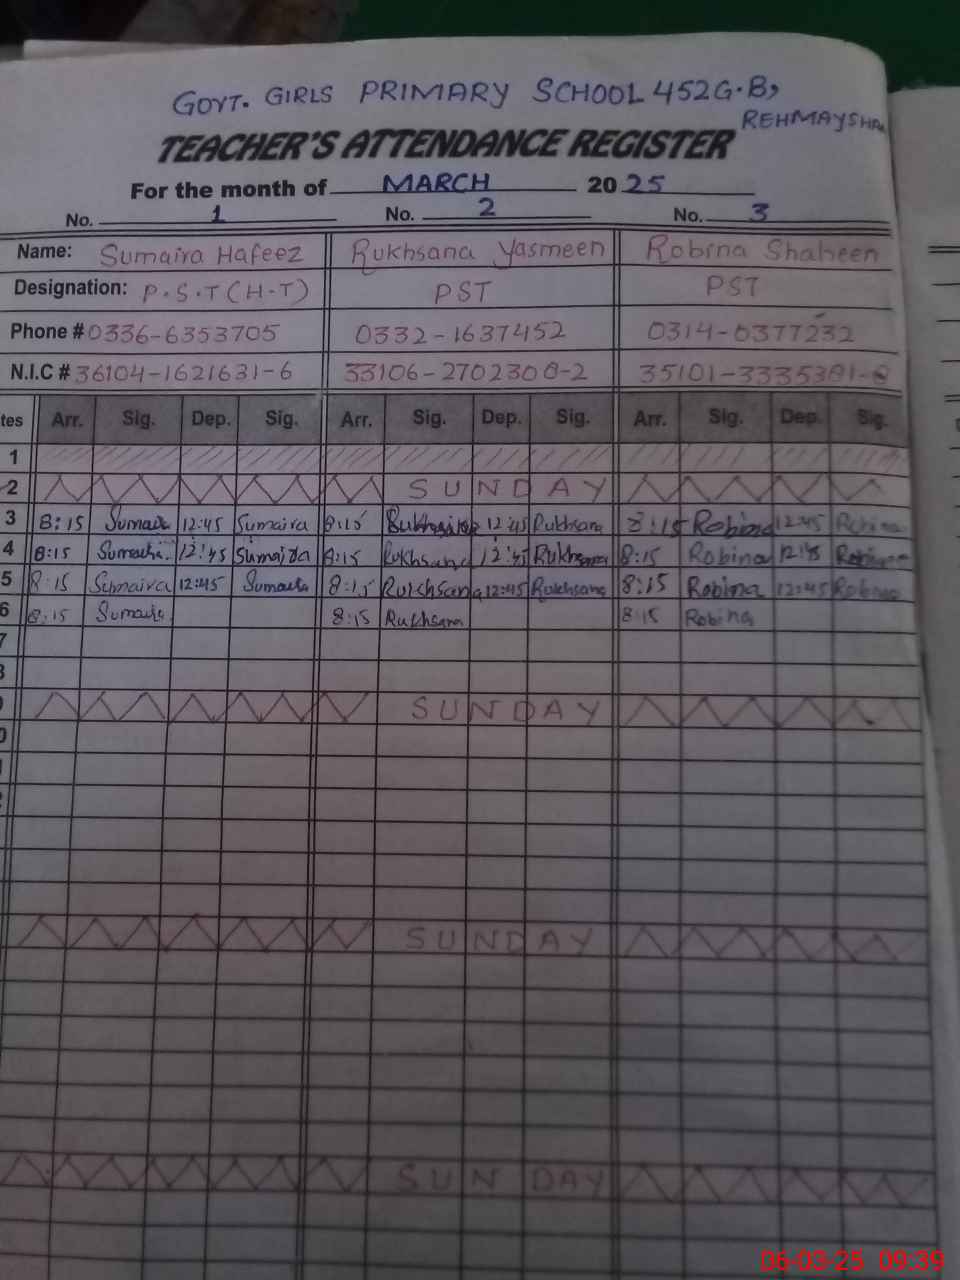 GOVT. GIRLS PRIMARY SCHOOL 452G.B,
REHMAYSHA
TEACHER'S ATTENDANCE REGISTER
For the month of MARCH 2025
No. 1 No. 2 No. 3
Name: Sumaira Hafeez Rukhsana Yasmeen Robina Shaheen
Designation: P.S.T (H-T) PST PST
Phone # 0336-6353705 0332-1637452 0314-0377232
N.I.C # 36104-1621631-6 33106-2702308-2 35101-3335381-8
tes Arr. Sig. Dep. Sig. Arr. Sig. Dep. Sig. Arr. Sig. Dep. Sig.
1
2 SUNDAY
3 8:15 Sumaira 12:45 Sumaira 8:15 Rukhsana 12:45 Rukhsana 8:15 Robina 12:45 Robina
4 8:15 Sumaira 12:45 Sumaira 8:15 Rukhsana 12:45 Rukhsana 8:15 Robina 12:45 Robina
5 8:15 Sumaira 12:45 Sumaira 8:15 Rukhsana 12:45 Rukhsana 8:15 Robina 12:45 Robina
6 8:15 Sumaira 8:15 Rukhsana 8:15 Robina
7
SUNDAY
SUNDAY
SUNDAY
06-03-25 09:39